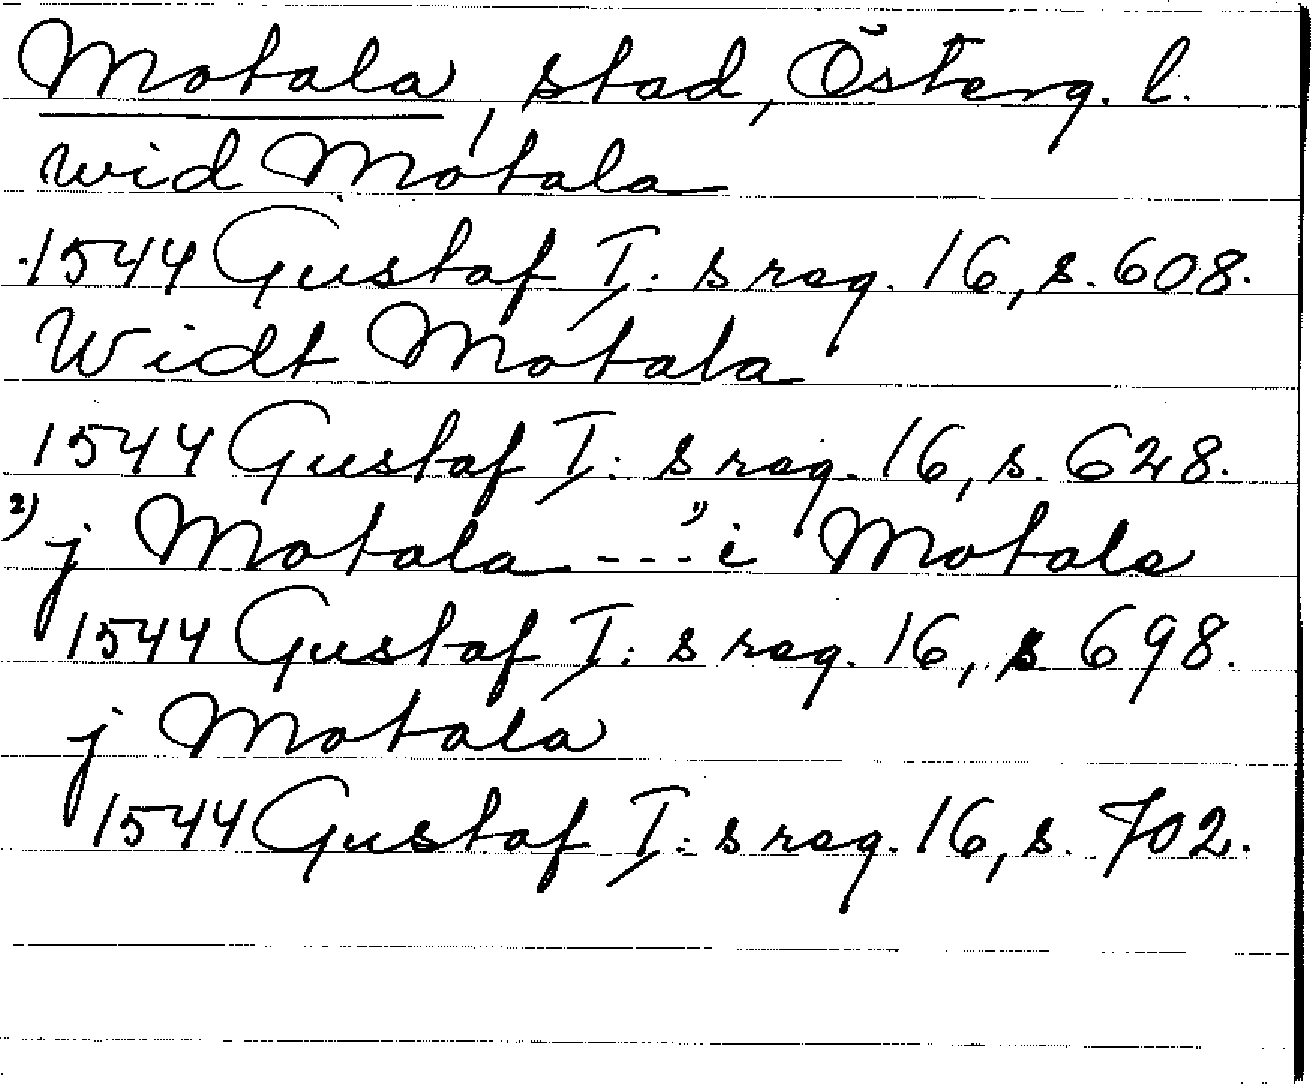 Motala, stad, Österg. l.
wid Motala
1544 Gustaf I: s reg. 16, s. 608.
Widt Motala
1544 Gustaf I: s reg. 16, s. 628.
2) j Motala - - - " i Motala
1544 Gustaf I: s reg. 16, s 698.
j Motala
1544 Gustaf I: s reg. 16, s. 702.